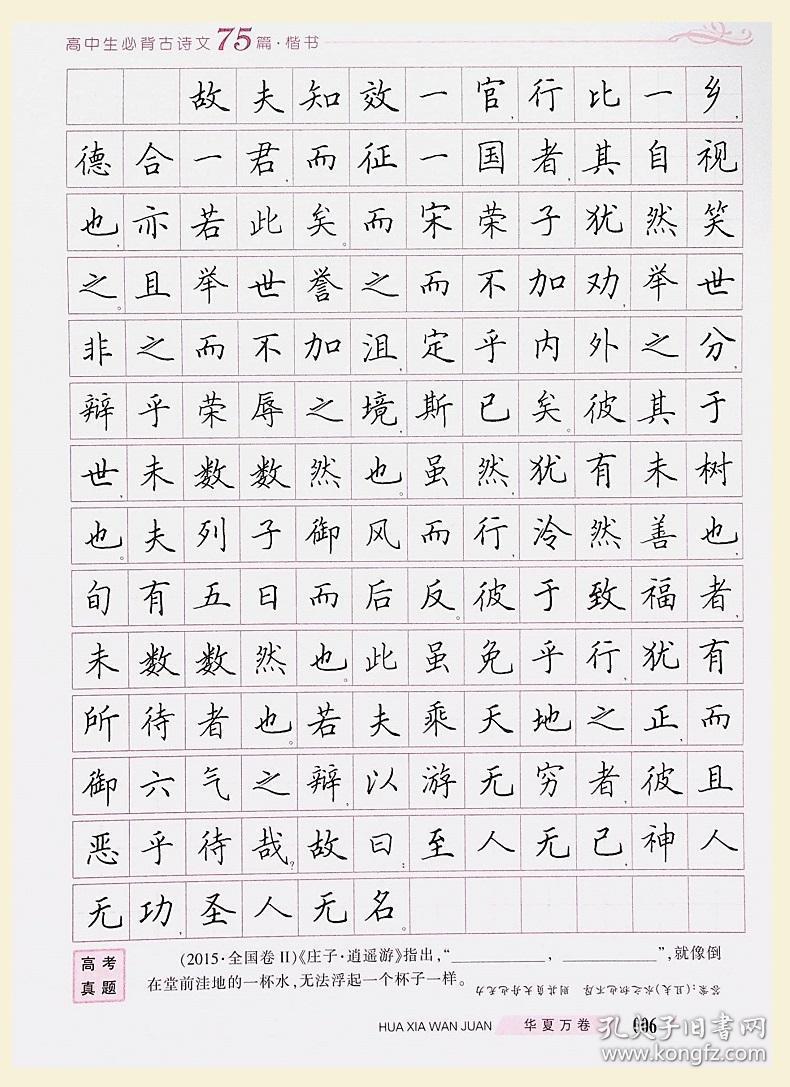 高中生必背古诗文75篇·楷书
故夫知效一官，行比一乡，
德合一君，而征一国者，其自视
也，亦若此矣。而宋荣子犹然笑
之。且举世誉之而不加劝，举世
非之而不加沮，定乎内外之分，
辩乎荣辱之境，斯已矣。彼其于
世，未数数然也。虽然，犹有未树
也。夫列子御风而行，泠然善也，
旬有五日而后反。彼于致福者，
未数数然也。此虽免乎行，犹有
所待者也。若夫乘天地之正，而
御六气之辩，以游无穷者，彼且
恶乎待哉？故曰：至人无己，神人
无功，圣人无名。
高考真题
(2015·全国卷Ⅱ)《庄子·逍遥游》指出，“__________，__________”，就像倒
在堂前洼地的一杯水，无法浮起一个杯子一样。
答案：(且夫)水之积也不厚 则其负大舟也无力
HUA XIA WAN JUAN 华夏万卷 006
孔夫子旧书网
www.kongfz.com